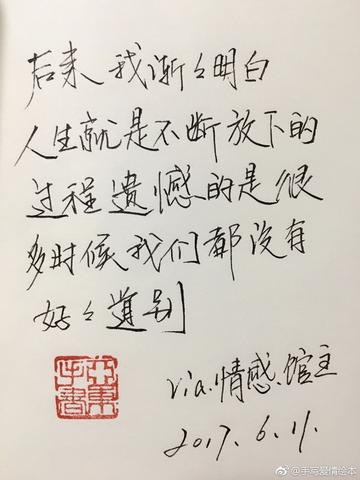 后来 我渐々明白
人生就是不断放下的
过程 遗憾的是很
多时候 我们都没有
好々道别
via.情感.馆主
2017.6.11.
@手写爱情绘本